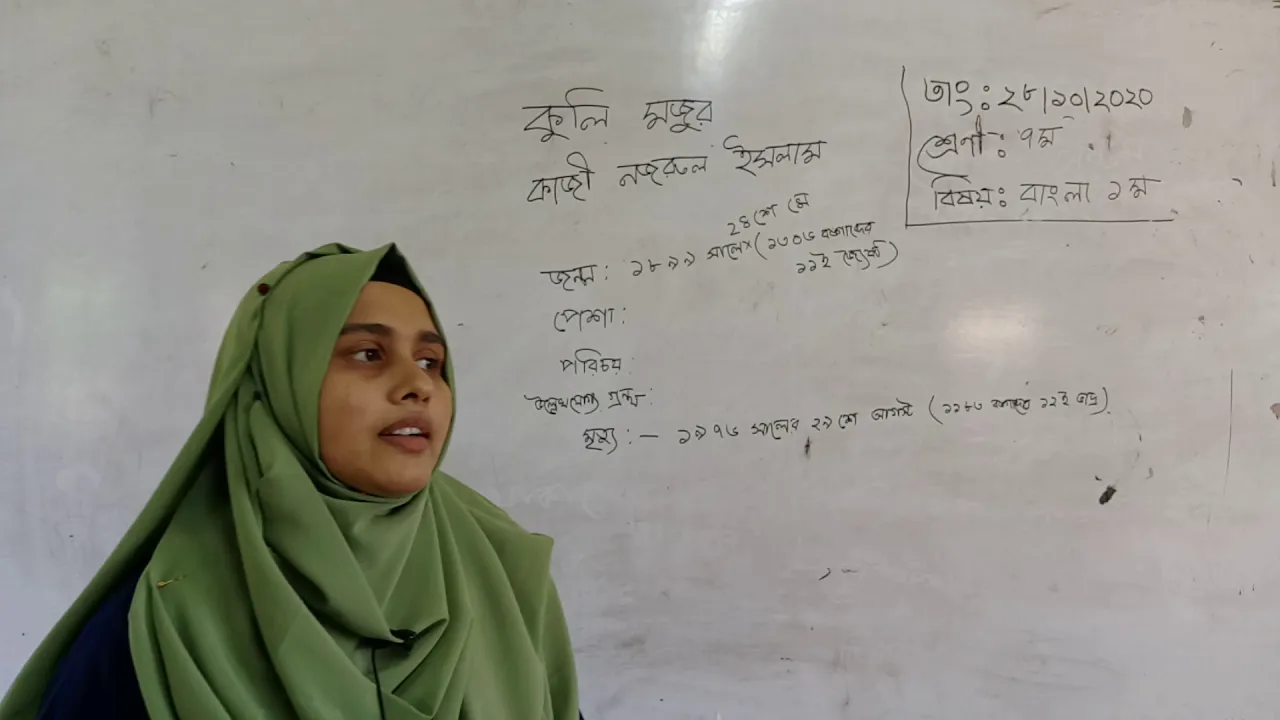 কুলি মজুর
কাজী নজরুল ইসলাম
তাং: ২৮/১০/২০২০
শ্রেণী: ৭ম
বিষয়: বাংলা ১ম
২৪শে মে
জন্ম: ১৮৯৯ সালে (১৩০৬ বঙ্গাব্দের
১১ই জ্যৈষ্ঠ)
পেশা:
পরিচয়:
উল্লেখযোগ্য গ্রন্থ:
মৃত্যু: – ১৯৭৬ সালের ২৯শে আগস্ট (১৩৮৩ বঙ্গাব্দের ১২ই ভাদ্র)